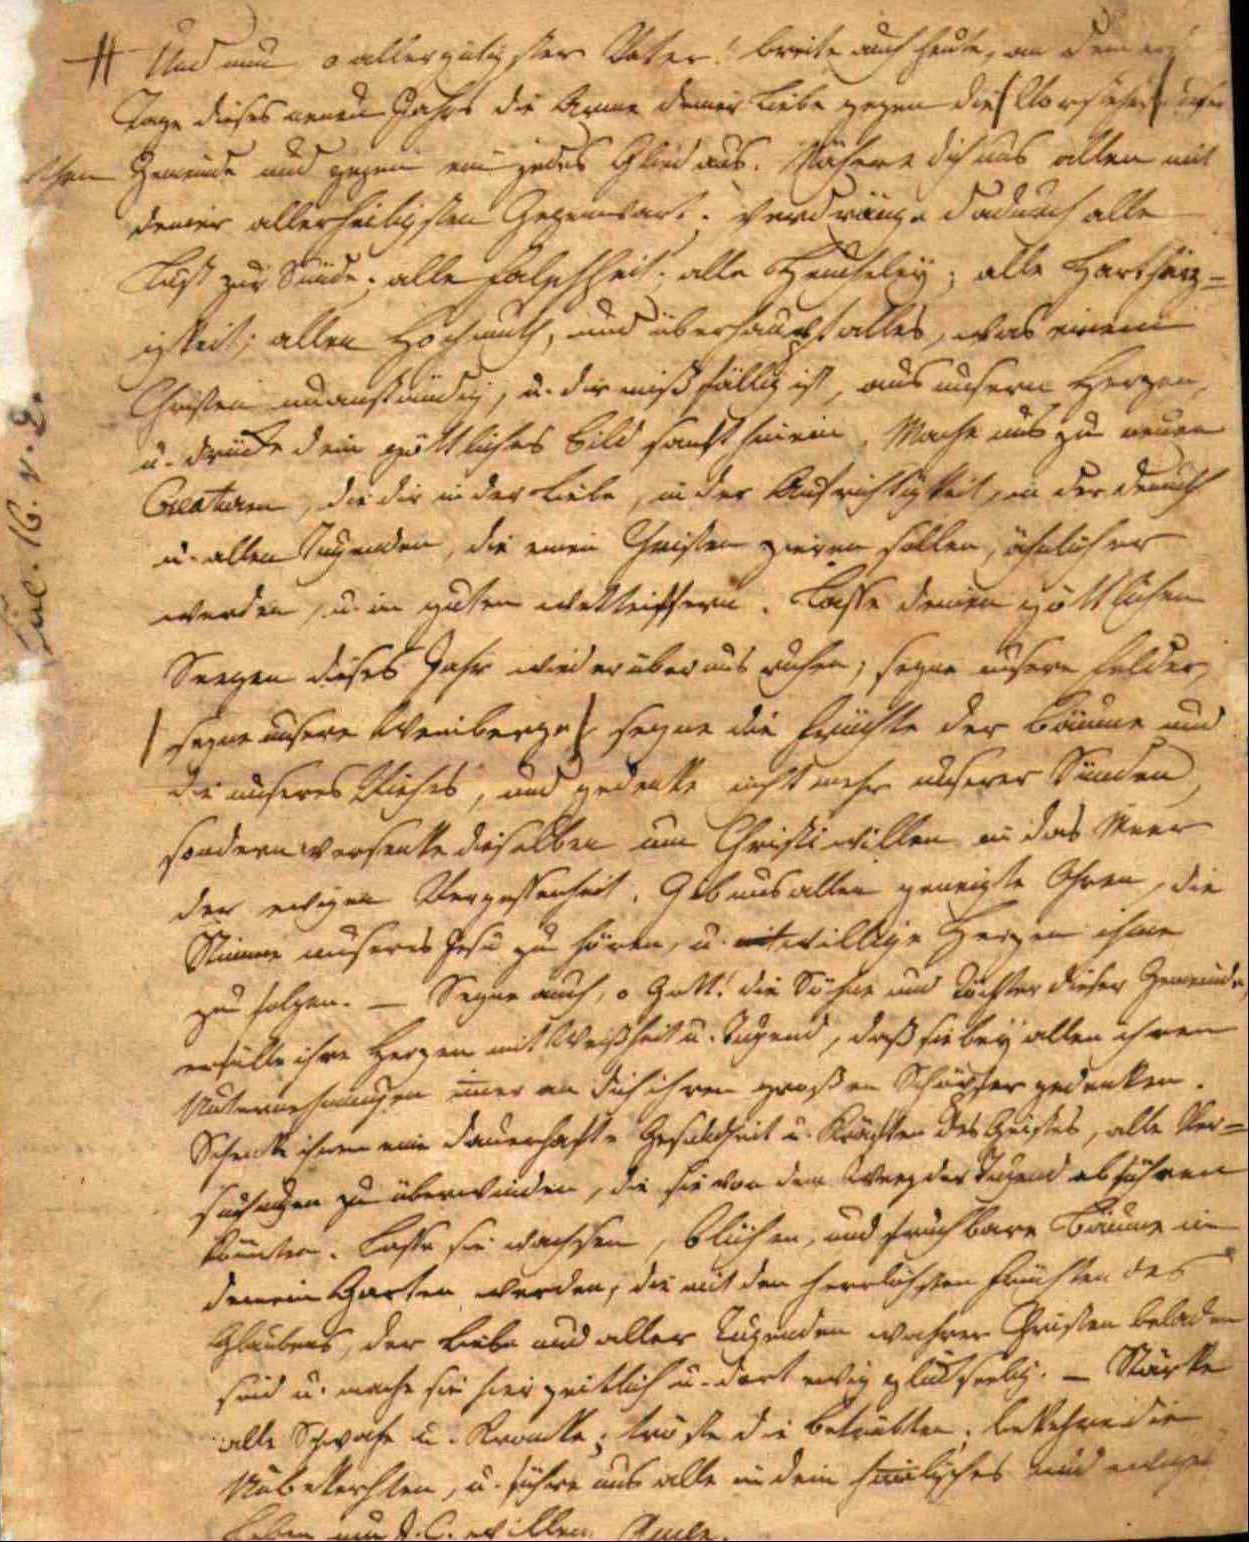 Und nun o allergütigster Vater! breite auch heute, an dem
Tage dieses neuen Jahrs die Arme deiner Liebe gegen die
Gemeinde und gegen ein jedes Glied aus. Nähere dich uns allen mit
deiner allerheiligsten Gegenwart; verdränge dadurch alle
Lust zur Sünde; alle Falschheit; alle Heucheley; alle Hartherz=
igkeit; allen Hochmuth, und überhaupt alles, was einem
Christen unanständig, u. dir mißfällig ist, aus unsern Herzen,
u. drücke dein göttliches Bild sanft hinein. Mache uns zu neuen
Creaturen, die dir in der Liebe, in der Aufrichtigkeit, in der Demuth
u. allen Tugenden, die einen Christen zieren sollen, ähnlicher
werden, u. im guten wetteiffern. Lasse deinen göttlichen
Seegen dieses Jahr wieder über uns ruhen; segne unsere Felder,
segne unsere Weinberge, segne die Früchte der Bäume und
die unseres Viehes, und gedenke nicht mehr unserer Sünden,
sondern versenke dieselben um Christi willen in das Meer
der ewigen Vergessenheit. Gib uns allen geneigte Ohren, die
Stimme unseres Jesu zu hören, u. willige Herzen ihme
zu folgen. — Segne auch, o Gott! die Söhne und Töchter dieser Gemeinde,
erfülle ihre Herzen mit Weißheit u. Tugend, daß sie bey allen ihren
Unternehmungen im̄er an dich ihren großen Schöpfer gedenken.
Schenke ihnen eine dauerhafte Gesundheit u. Kräfften des Geistes, alle Ver=
suchungen zu überwinden, die sie von dem Weeg der Tugend abführen
könnten. Lasse sie wachsen, blühen, und fruchbare Bäume in
deinem Garten werden, die mit den herrlichsten Früchten des
Glaubens, der Liebe und aller Tugenden wahrer Christen beladen
sind u. mache sie hier zeitlich u. dort ewig glückseelig. — Stärke
alle Schwache u. Kranke; tröste die betrübten; bekehre die
Unbekehrten, u. führe uns alle in dein him̄lisches und ewiges
Leben um J. C. willen. Amen.